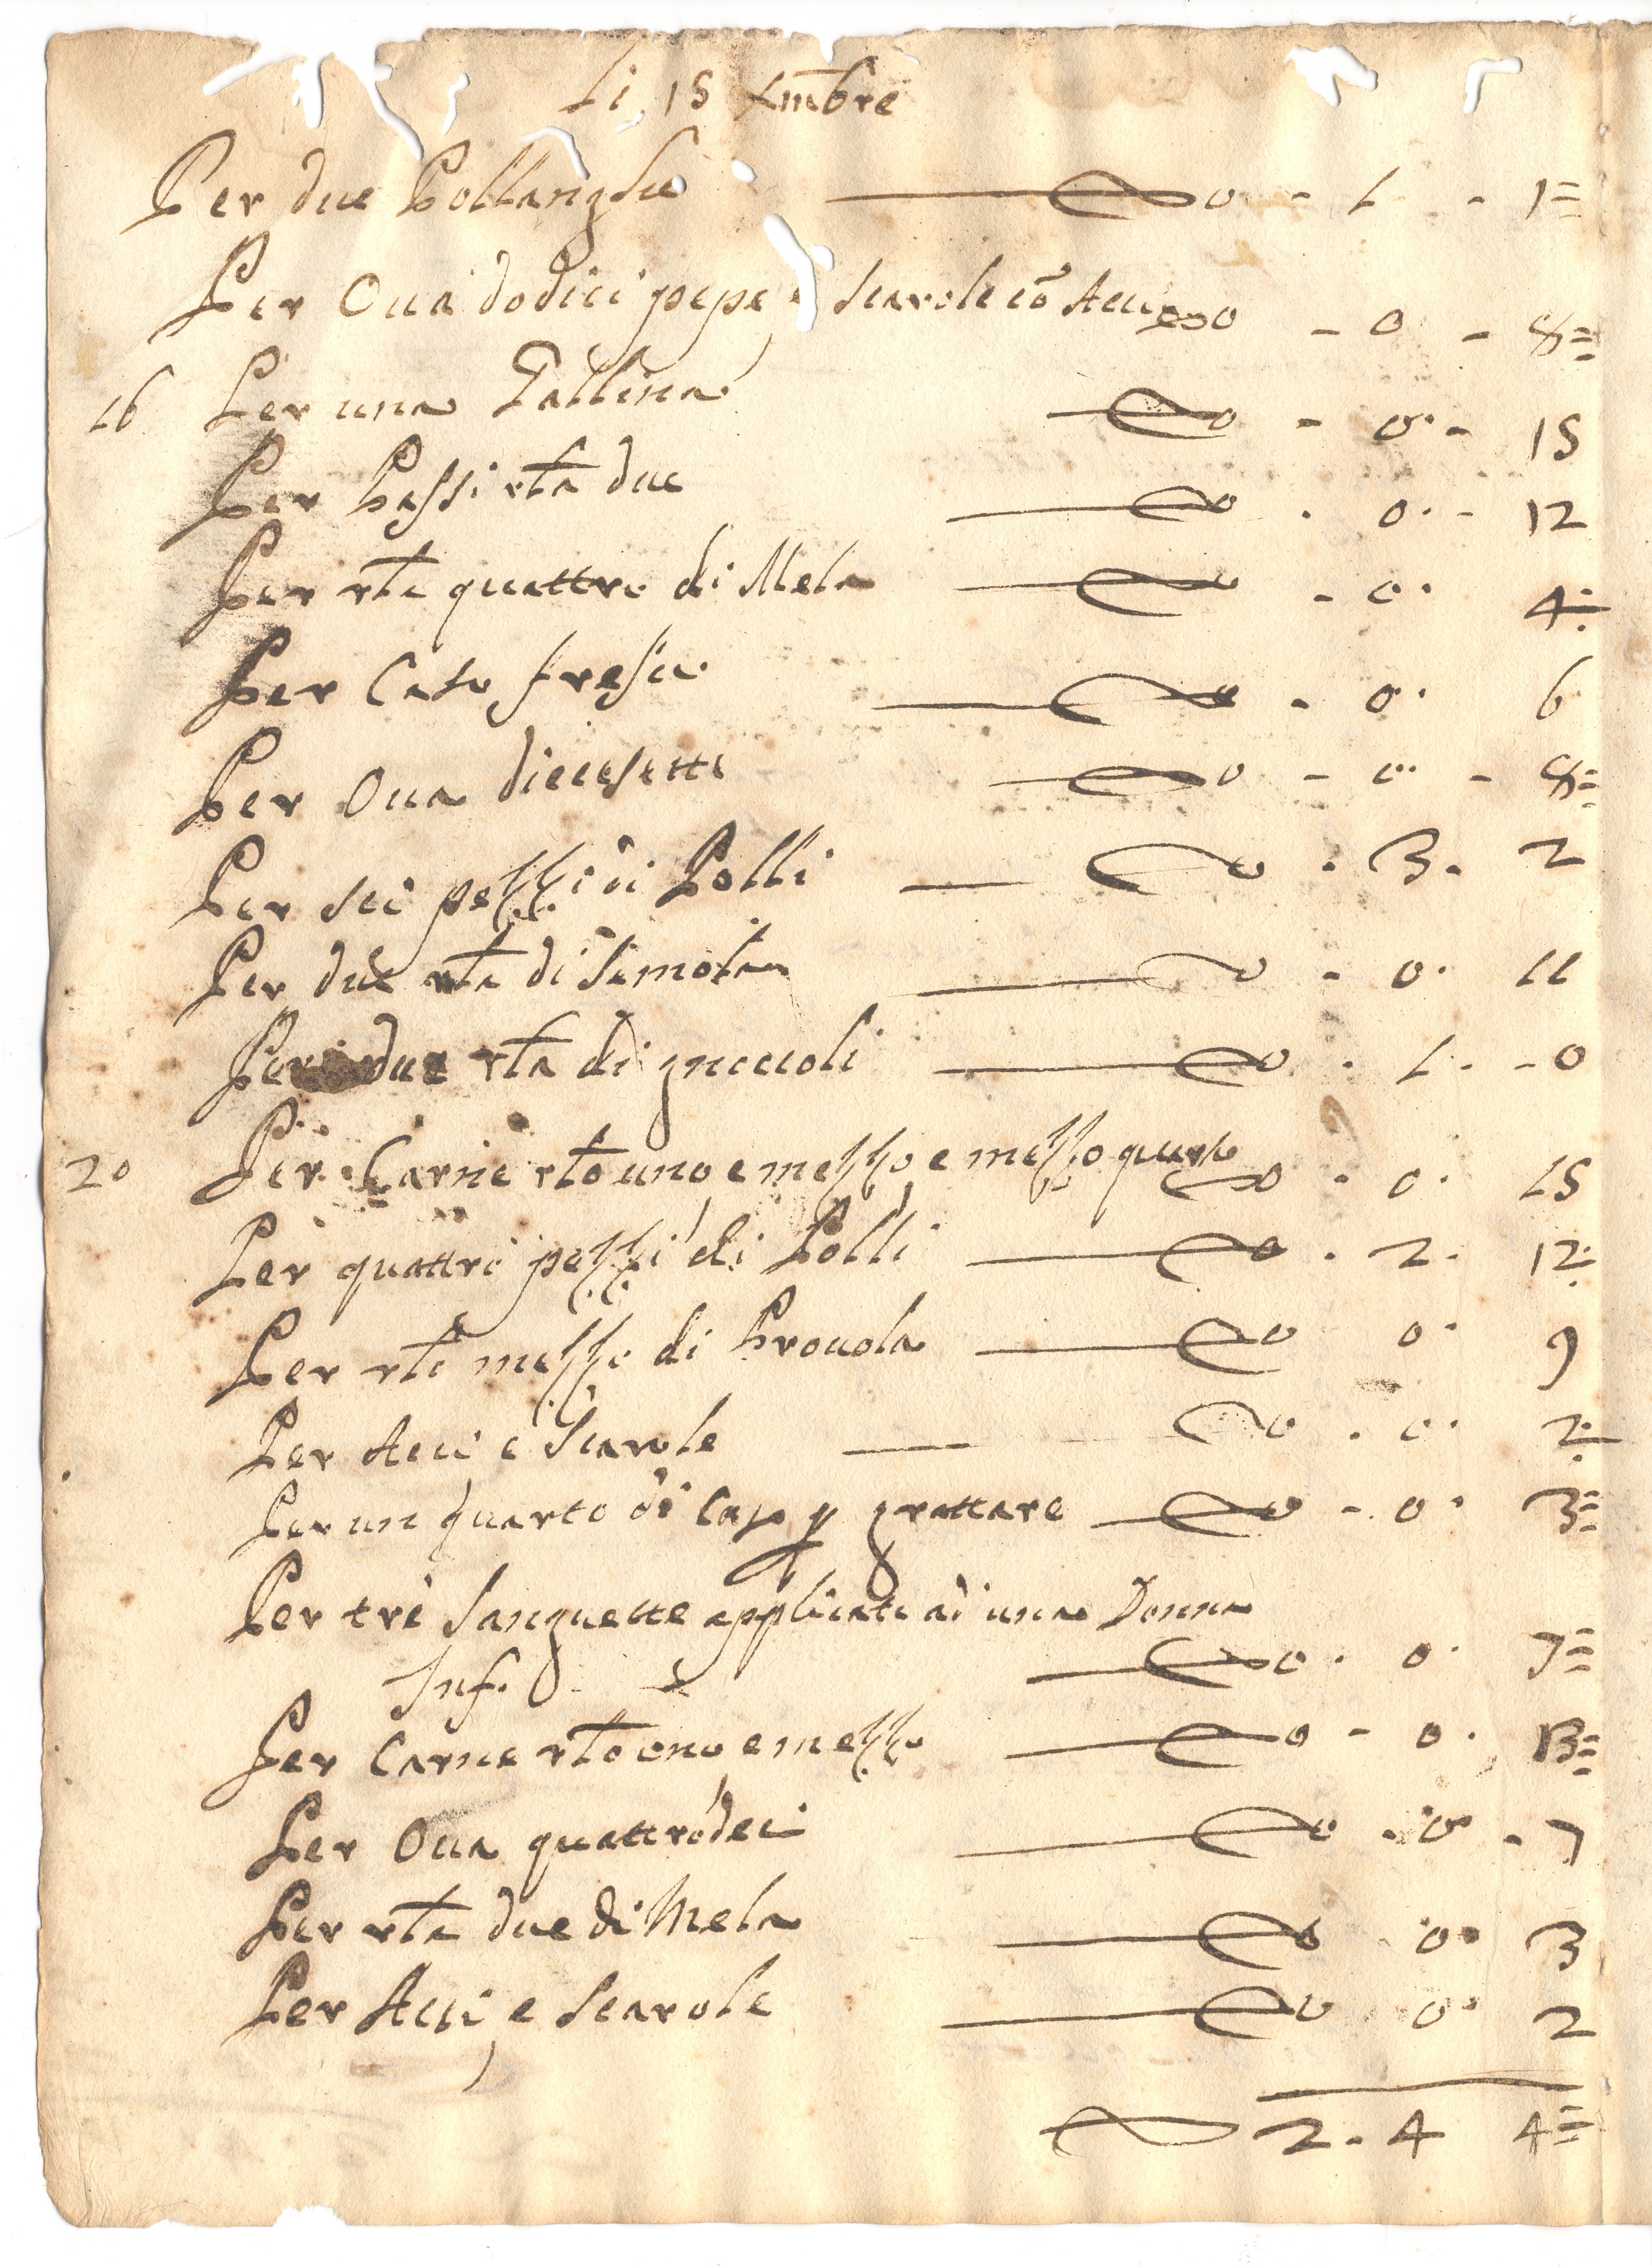 Li 15 Xmbre
Per due Pollanghe 0 - 1 - 1=
Per Oua dodici pepe e scarole cõ Acci 0 - 0 - 8=
16 Per una Gallina 0 - 0 - 15
Per Passi rta due 0 - 0 - 12
Per rta quattro di Mela 0 - 0 4
Per Caso fresco 0 - 0 6
Per Oua diecesette 0 - 0 - 8=
Per sei pezzi di Polli 0 . 3 . 2
Per due rta di Simola 0 - 0 11
Per due rta di gnoccoli 0 . 1 - 0
20 Per Carne rto uno e mezzo e mezzo quarto 0 - 0 15
Per quattro pezzi di Polli 0 . 2 . 12
Per rto mezzo di Prouola 0 0 9
Per Acci e Scarole 0 . 0 2
Per un quarto di Caso p grattare 0 - 0 3=
Per tre Sanguette applicate ad una Donna
Inf. 0 . 0 7=
Per Carne rto uno e mezzo 0 - 0 13=
Per Oua quattrodeci 0 . 0 - 7
Per rta due di Mela 0 0 3
Per Acci e Scarole 0 0 2
2 . 4 4=